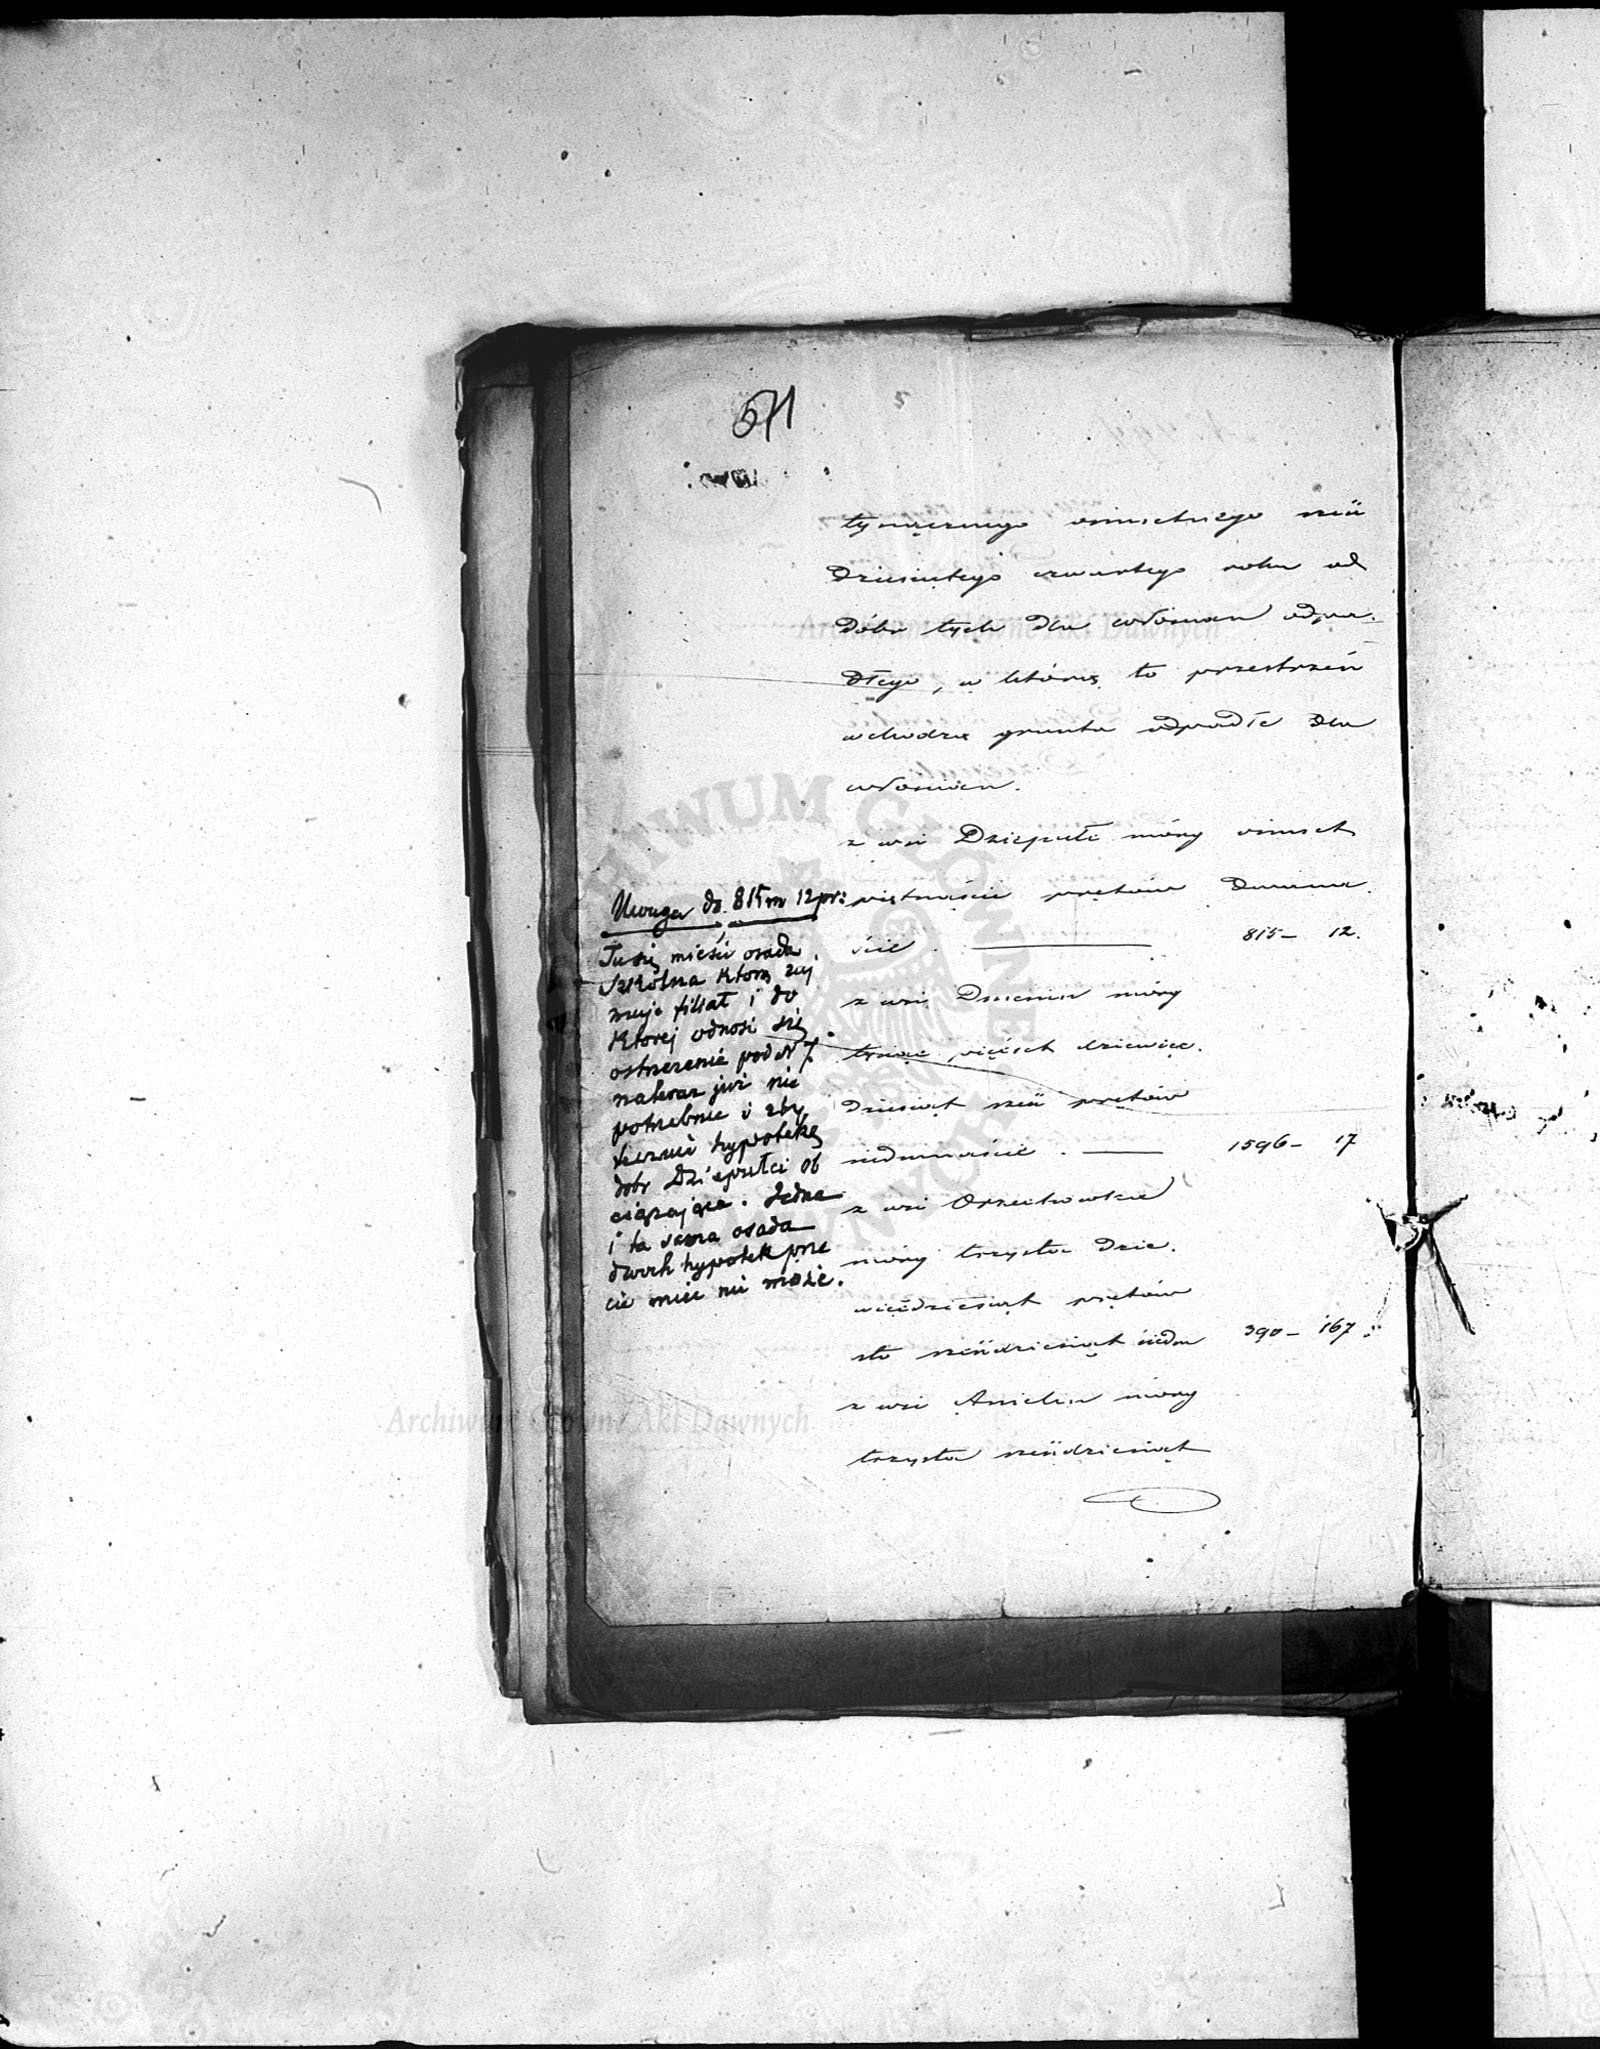 511
tysiącznego ośmsetnego sześć
dziesiątego czwartego roku od
dóbr tych dla włościan odpa-
dłego, w którą to przestrzeń
wchodzą grunta odpadłe dla
włościan.
z wsi Dziepułć mórg ośmset
piętnaście prętów dwana-
ście. 815 — 12.
z wsi Dmenin mórg
tysiąc pięćset dziewięć-
dziesiąt sześć prętów
siedmnaście. 1596 — 17
z wsi Orzechówek
mórg trzysta dzie-
więćdziesiąt prętów
sto sześćdziesiąt siedm 390 — 167.
z wsi Anielin mórg
trzysta sześćdziesiąt
Uwaga do 815 m 12 pr:
Tu się mieści osada
szkolna którą zaj
muje filiał i do
której odnosi się
ostrzeżenie pod N 7.
nateraz już nie
potrzebnie i zby
tecznie hypotekę
dobr Dziepułci ob
ciążające. Jedna
i ta sama osada
dwóch hypotek prze
cie mieć nie może.
Archiwum Główne Akt Dawnych
ARCHIWUM GŁÓWNE
DAWNYCH
Archiwum Główne Akt Dawnych